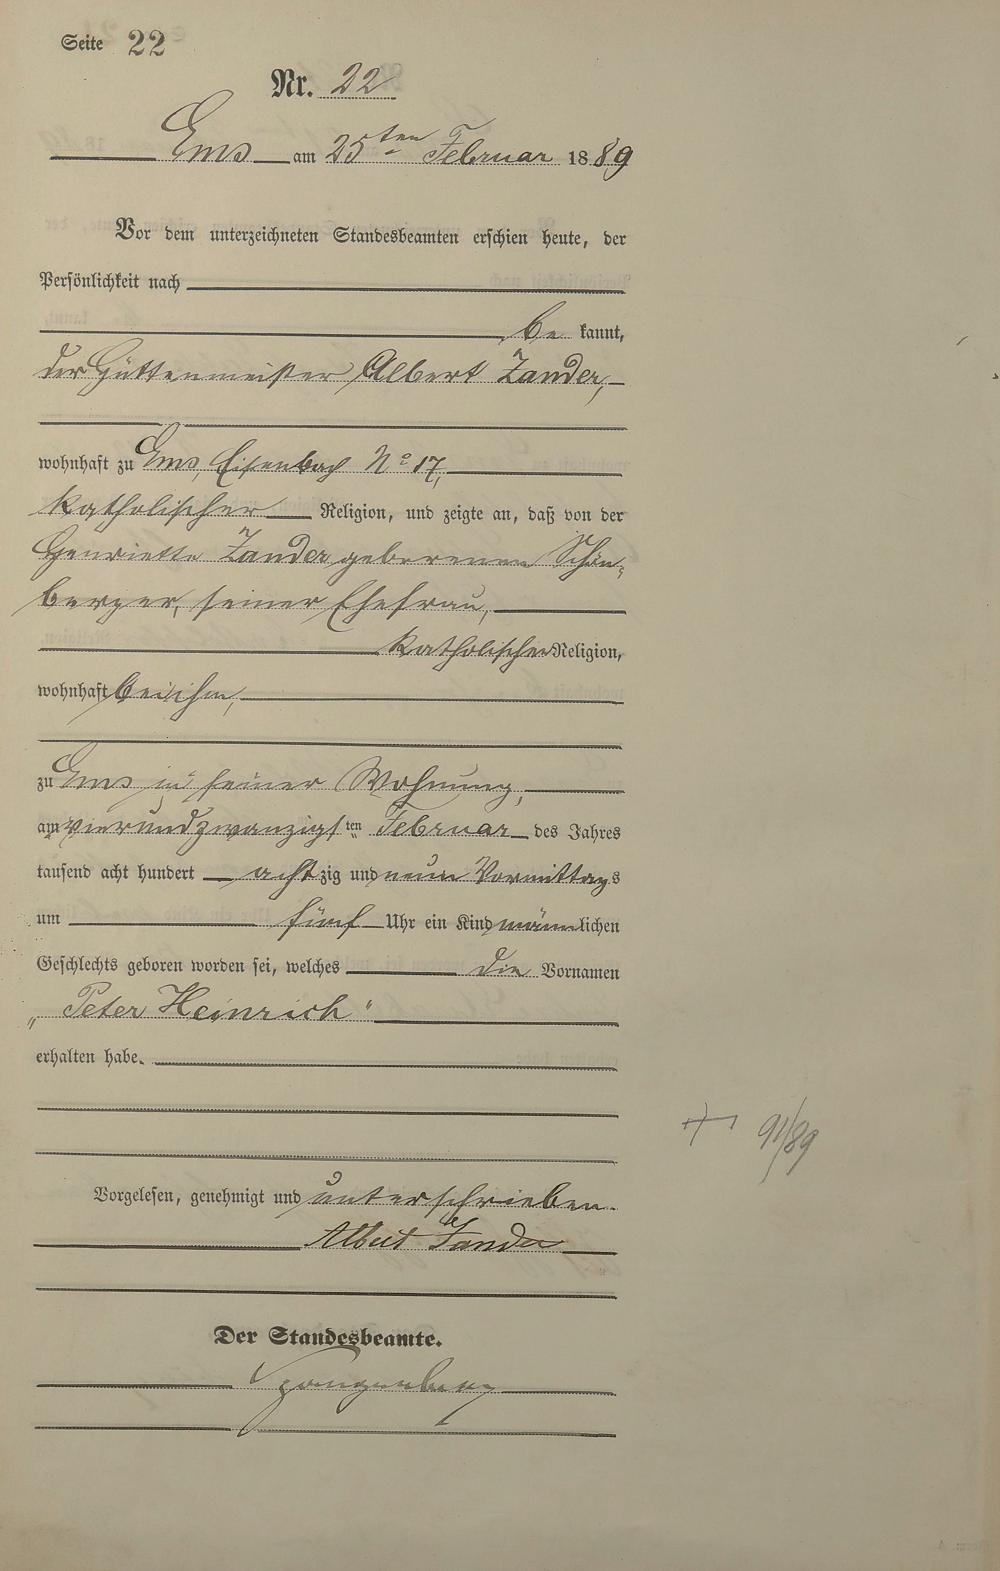 Seite 22
Nr. 22
Ems am 25ten Februar 1889
Vor dem unterzeichneten Standesbeamten erschien heute, der
Persönlichkeit nach
be kannt,
der Hüttenmeister Albert Zander,
wohnhaft zu Ems, Eisenbach No 17,
katholischer Religion, und zeigte an, daß von der
Henriette Zander geborenen Schön-
berger, seiner Ehefrau,
katholischer Religion,
wohnhaft bei ihm,
zu Ems in seiner Wohnung,
am vierundzwanzigsten Februar des Jahres
tausend acht hundert achtzig und neun Vormittags
um fünf Uhr ein Kind männlichen
Geschlechts geboren worden sei, welches die Vornamen
„Peter Heinrich"
erhalten habe.
† 91/89
Vorgelesen, genehmigt und unterschrieben.
Albert Zander
Der Standesbeamte.
Spangenberg